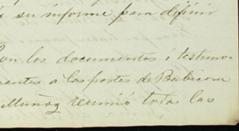 su informe para definir
con los documentos i testimo-
nentes a los postes de Babicora
Muñoz reunió toda las